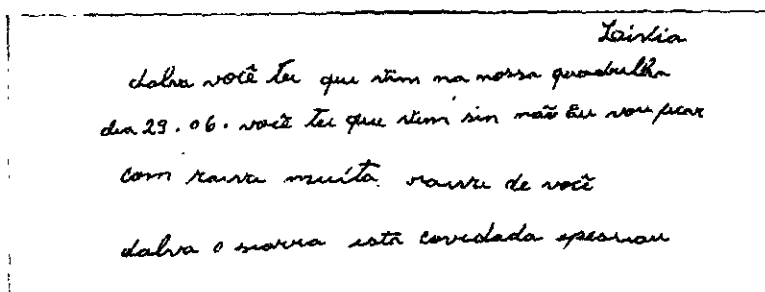 dalva você tei que vim na nossa quadrulha
dia 29.06. você tei que vim sin não Eu vou ficar
com raiva muita raiva de você
dalva o está covidada